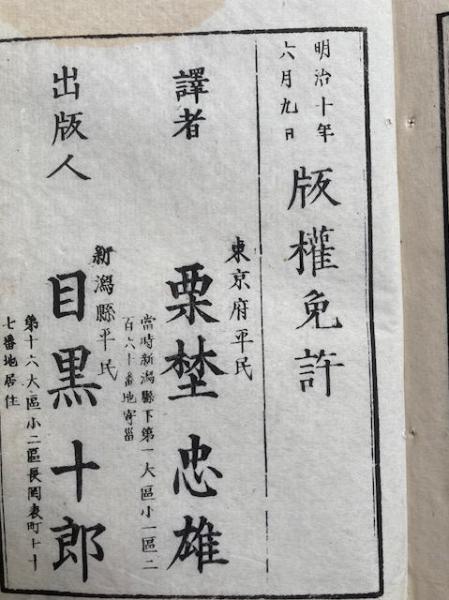 明治十年
六月九日
版權免許
東京府平民
譯者
栗埜忠雄
當時新潟縣下第一大區小一區二
百六十番地寄畄
新潟縣平民
出版人
目黒十郎
第十六大區小二區長岡表町十十
七番地居住